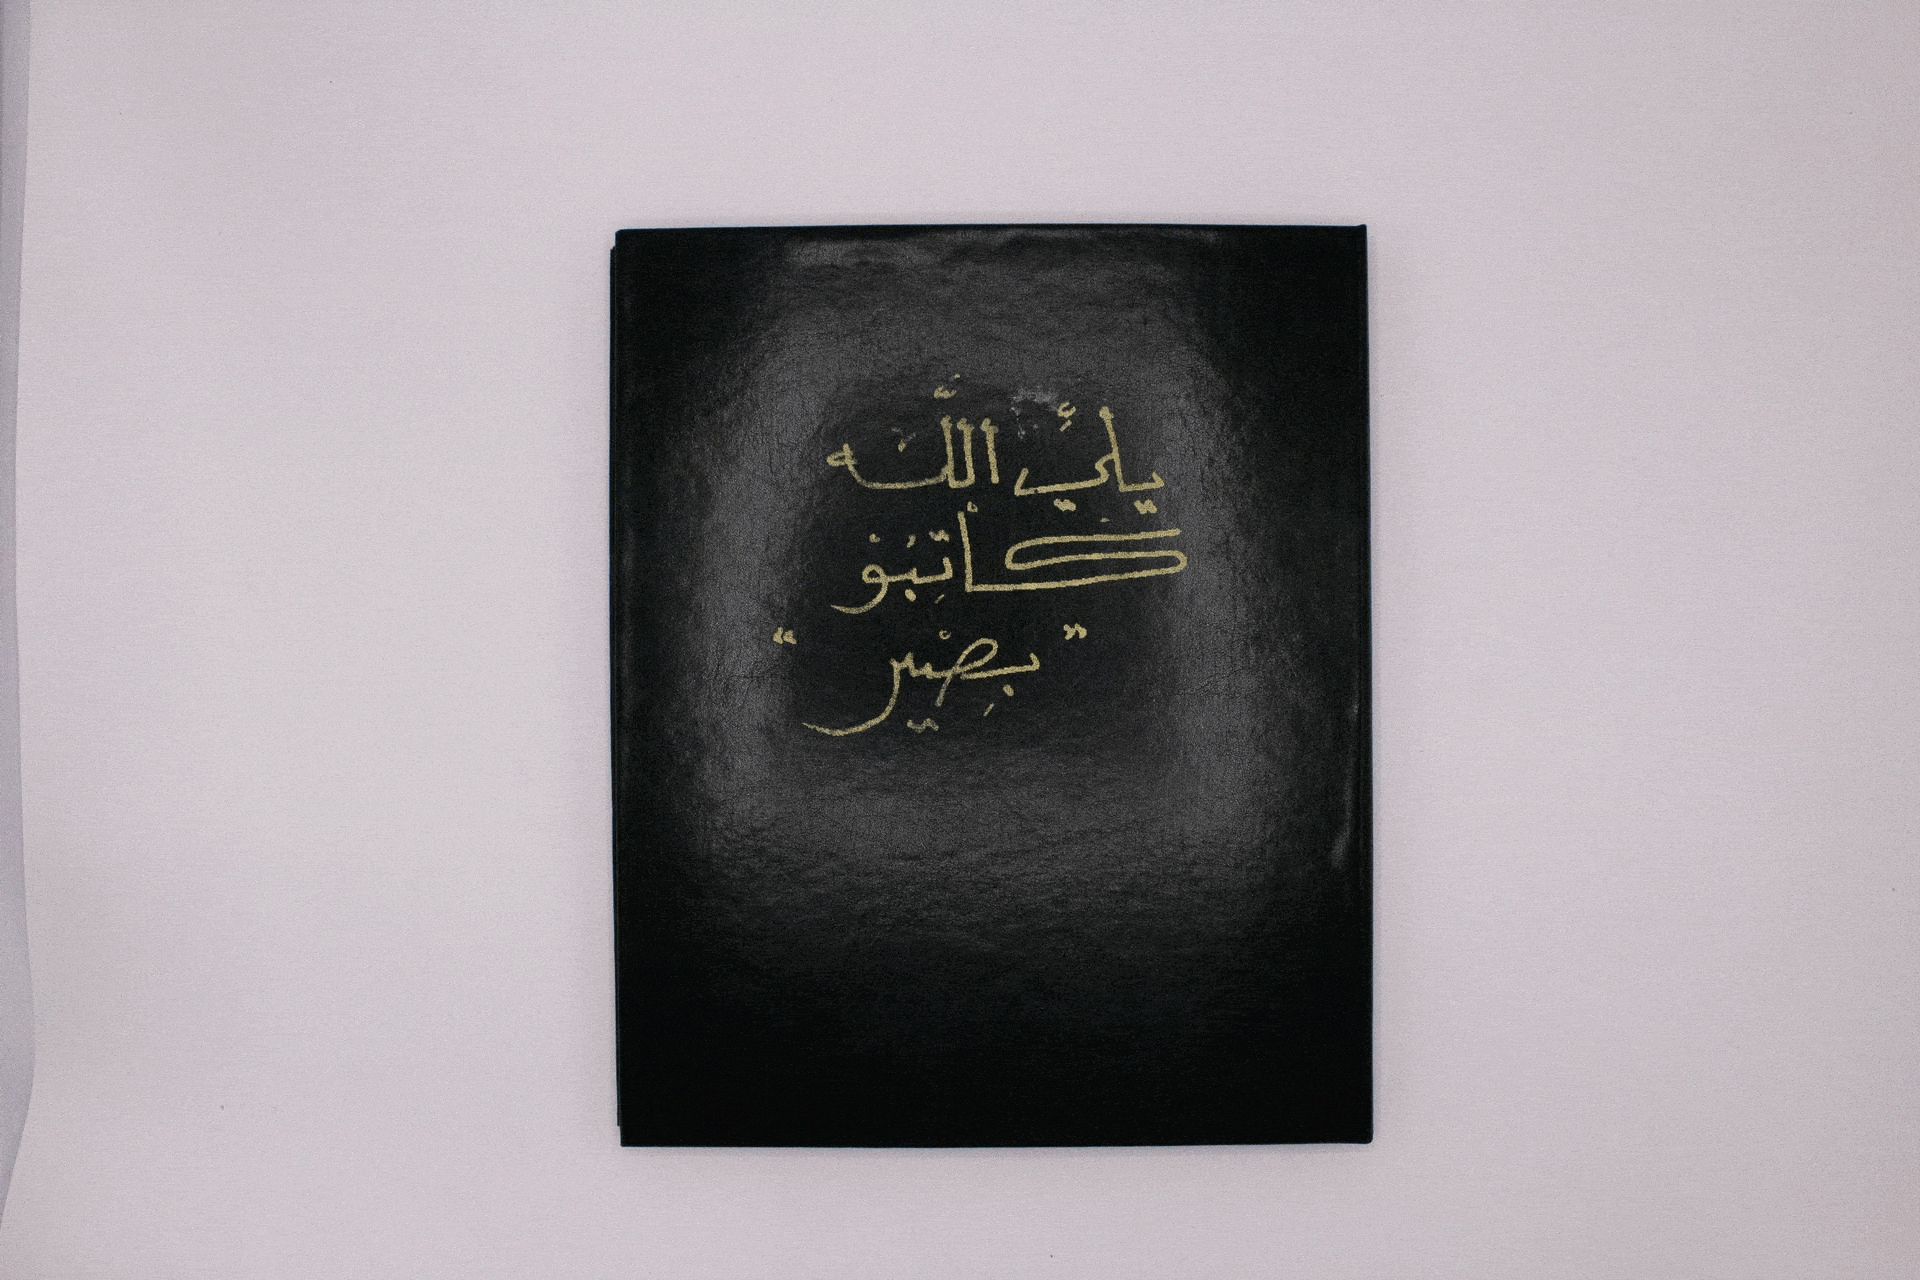 يلئِ اللَّه
كَاتِبُوْ
” بِصْير “